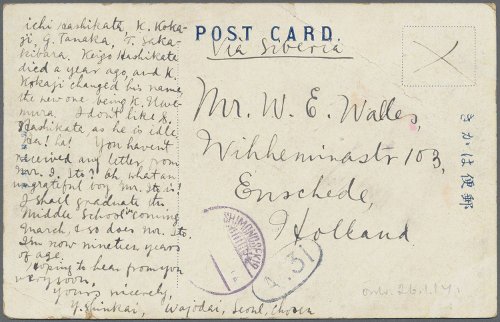 POST CARD.
Via Siberia
ichi Hashikata, K. Koka-
ji, G. Tanaka, T. Saka-
kibara. Keizo Hashikata
died a year ago, and K.
Kokaji changed his name
the new one being K. Uwe-
mura. I don't like S.
Hashikata, as he is idle,
ha! ha! You haven't
received any letter from
Mr. I. Ito? Oh what an
ungrateful boy Mr. Ito is!
I shall graduate the
Middle School coming
March, & so does Mr. Ito.
I'm now nineteen years
of age.
Hoping to hear from you
very soon,
Yours sincerely,
Y. Shinkai, Wajodai, Seoul, Chosen
Mr. W. E. Walles,
Wilhelminastr 103,
Enschede,
Holland
きかは便郵
SHIMONOSEKI
4.31